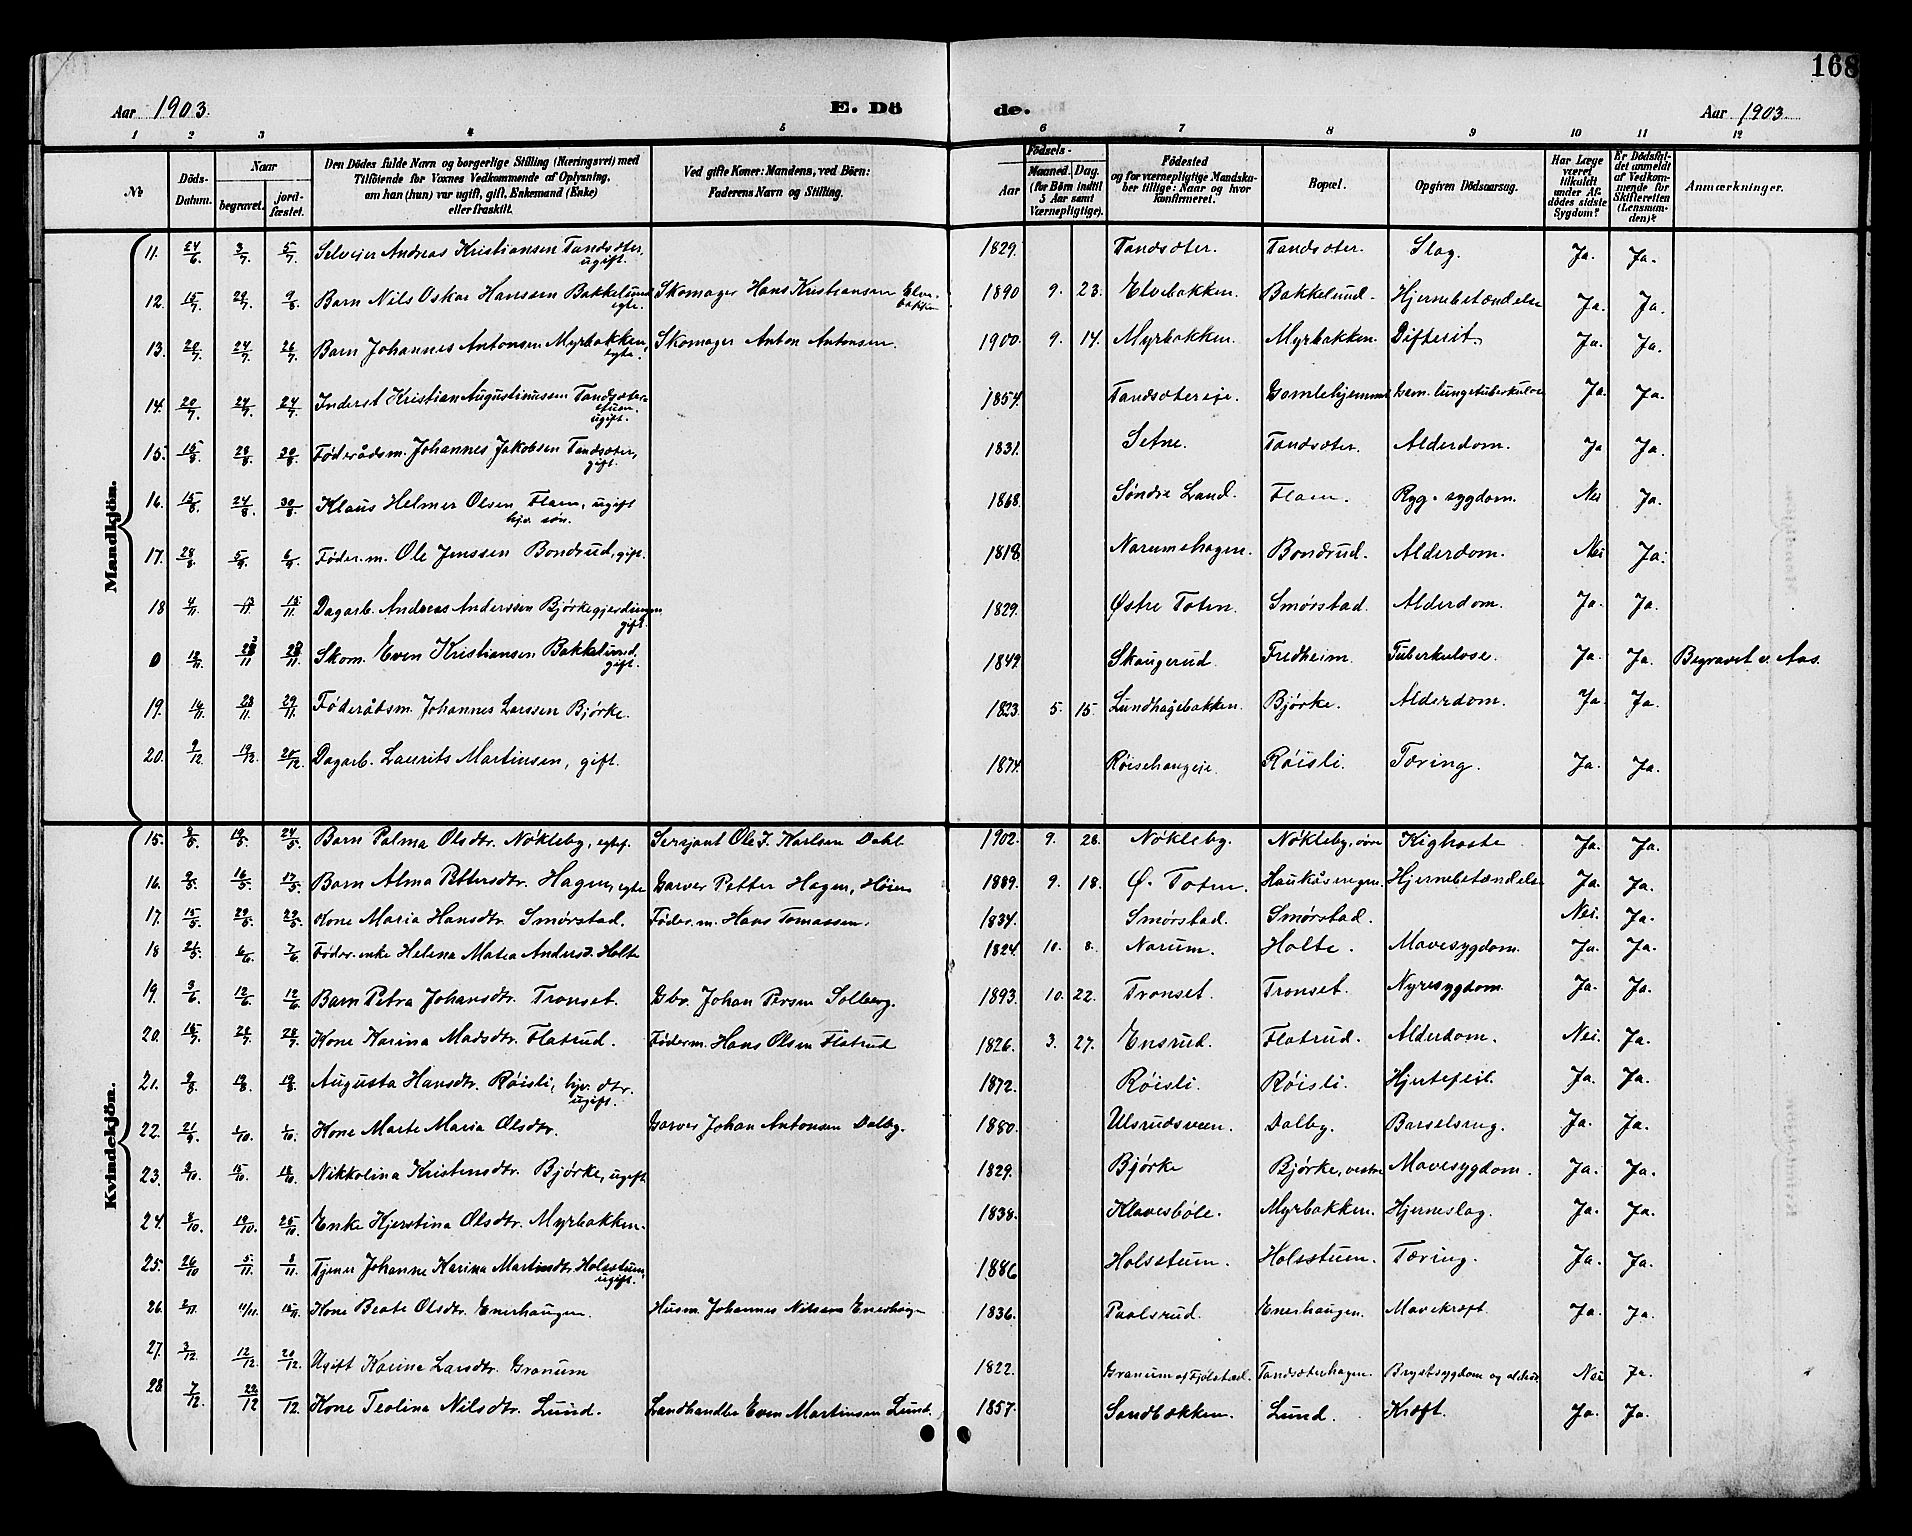 168
Aar 1903. E. Dö de. Aar 1903.
1 2 3 4 5 6 7 8 9 10 11 12
№ Döds-Datum. Naar begravet. jordfæstet. Den Dödes fulde Navn og borgerlige Stilling (Næringsvei) med Tilföiende for Voxnes Vedkommende af Oplysning, om han (hun) var ugift, gift, Enkemand (Enke) eller fraskilt. Ved gifte Koner: Mandens, ved Börn: Faderens Navn og Stilling. Födsels- Aar Maaned. Dag. (for Børn indtil 5 Aar samt Værnepligtige). Födested og for værnepligtige Mandskaber tillige: Naar og hvor konfirmeret. Bopæl. Opgiven Dödsaarsag. Har Læge været tilkaldt under Afdödes sidste Sygdom? Er Dödsfaldet anmeldt af Vedkommende for Skifteretten (Lensmanden)? Anmærkninger.
Mandkjön.
11. 24/6 3/7 5/7 Selveier Andreas Kristiansen Tandsæter, ugift. 1829. Tandsæter. Tandsæter. Slag. Ja. Ja.
12. 15/7 29/7 9/8 Barn Nils Oskar Hanssen Bakkelund egte. Skomager Hans Kristiansen 1890 9. 23. Elvebakken. Bakkelund. Hjernebetændelse Ja. Ja.
13. 20/7 24/7 26/7 Barn Johannes Antonsen Myrbakken, egte. Skomager Anton Antonsen. 1900. 9. 14. Myrbakken. Myrbakken. Difterit. Ja. Ja.
14. 20/7 24/7 24/7 Inderst Kristian Augustinussen Tandsæterstuen. ugift. 1854. Tandsætereie. Gamlehjemmet Gam. lungetuberkulose Ja. Ja.
15. 15/8 28/8 30/8 Føderådsm. Johannes Jakobsen Tandsæter, gift. 1831. Setne. Tandsæter. Alderdom. Ja Ja.
16. 15/8 24/8 30/8 Klaus Helmer Olsen Flaen, ugift hjv. søn. 1868. Søndre Land. Flaen. Ryg-sygdom. Nei Ja.
17. 28/8 5/9 6/9 Føder.m. Ole Jenssen Bondrud, gift. 1818. Narumshagen. Bondrud. Alderdom. Nei Ja.
18 4/11 15/11 Dagarb. Andreas Anderssen Bjørkegjerdingen gift. 1829. Østre Toten. Smørstad. Alderdom. Ja. Ja.
0 12/11 28/11 Skom. Even Kristiansen Bakkelund, gift. 1849. Skaugerud. Fredheim. Tuberkulose. Ja. Ja. Begravet v. Aas.
19. 14/11 28/11 29/11 Føderådsm. Johannes Larssen Bjørke. 1823. 5. 15. Lundhagebakken. Bjørke. Alderdom. Ja. Ja.
20. 9/12 19/12 20/12 Dagarb. Laurits Martinsen, gift. 1874. Røisehaugeie. Røisli. Tæring. Ja. Ja.
Kvindekjön.
15. 9/5 19/5 24/5 Barn Palma Olsdtr. Nøkleby, egtef. Sersjant Ole J. Karlsen Dahl 1902. 9. 28. Nøkleby. Nøkleby, øvre Kighoste Ja. Ja.
16. 9/5 16/5 17/5 Barn Alma Pettersdtr. Hagen, egte Garver Petter Hagen, 1889. 9. 18. Ø. Toten. Haukåsengen. Hjernebetændelse Ja. Ja.
17. 15/5 29/5 29/5 Kone Maria Hansdtr. Smørstad. Føder.m. Hans Tomassen. 1834. Smørstad. Smørstad. Nei. Ja.
18 6/6 7/6 Føder.enke Helena Matea Andersd. Holte 1824. 10. 8. Narum. Holte. Mavesygdom. Ja. Ja.
19. 3/6 12/6 12/6 Barn Petra Johansdtr. Tronset. Gbr. Johan Persen Solberg. 1893. 10. 22. Tronset. Tronset. Nyresygdom Ja. Ja.
20. 15/7 28/7 28/7 Kone Karina Madsdtr. Flatrud. Føderm. Hans Olsen Flatrud 1826. 3. 27. Ensrud. Flatrud. Alderdom. Nei. Ja.
21. 9/8 19/8. 19/8 Augusta Hansdtr. Røisli, hjv. dtr. ugift. 1872. Røisli. Røisli. Hjertefeil. Ja. Ja.
22. 21/9 1/10 1/10. Kone Marte Maria Olsdtr. Garver Johan Antonsen Dalby. 1880. Ulsrudsveen. Dalby. Barselseng. Ja. Ja.
23. 15/10. 18/10 Nikkolina Kristensdtr. Bjørke, ugift 1829. Bjørke Bjørke, vestre Mavesygdom. Ja. Ja.
24. 8/10 19/10. 25/10 Enke Hjerstina Olsdtr. Myrbakken. 1838. Klavesbøle. Myrbakken. Hjerneslag. Ja. Ja.
25. 26/10 5/11 Tjener Johanne Karina Martinsdtr. Holsstuen, ugift. 1886 Holsstuen. Holsstuen. Tæring. Ja. Ja.
26. 2/11. 11/11. 15/11. Kone Beate Olsdtr. Enerhaugen. Husm. Johannes Nilssen Enerhaugen 1836. Paalsrud. Enerhaugen. Mavekræft. Ja. Ja.
27. 3/12. 12/12. 20/12. Ugift Karine Larsdtr. Granum 1822. Granum af Fjølstad. Tandsæterhagen. Brystsygdom og alderd. Nei Ja.
28. 7/12. 22/12 /12. Kone Teolina Nilsdtr. Lund. Landhandler Even Martinsen Lund. 1857. Sandbakken. Lund. Kræft. Ja. Ja.